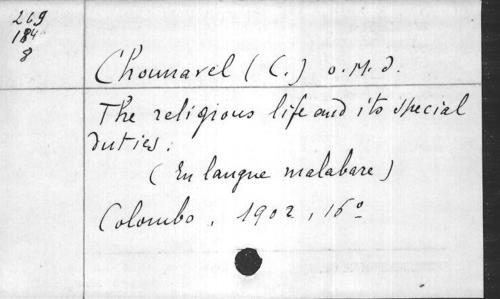 269
184
8
Chounavel (C.) o.M.J.
The religious life and its special
duties.
(En langue malabare)
Colombo, 1902, 16º